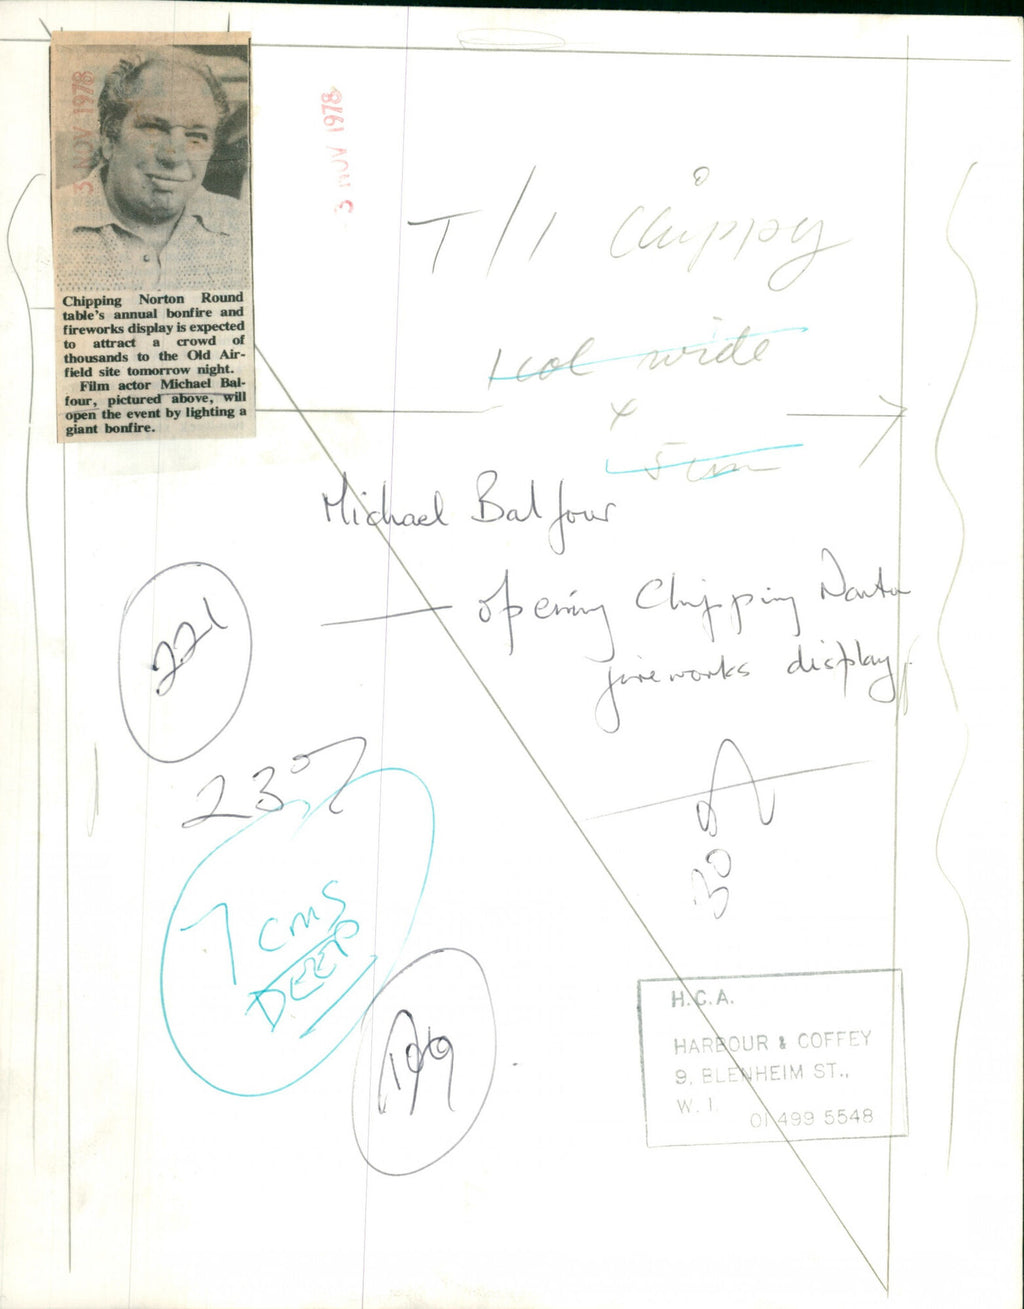 3 NOV 1978
3 NOV 1978
Chipping Norton Round
table's annual bonfire and
fireworks display is expected
to attract a crowd of
thousands to the Old Air-
field site tomorrow night.
Film actor Michael Bal-
four, pictured above, will
open the event by lighting a
giant bonfire.
T/1 Chippy
1 col wide
x
5 cm
Michael Balfour
— opening Chipping Norton
fireworks display
221
230
7 cms
DEEP
30
H.C.A.
HARBOUR & COFFEY
9, BLENHEIM ST.,
W. 1.
01 499 5548